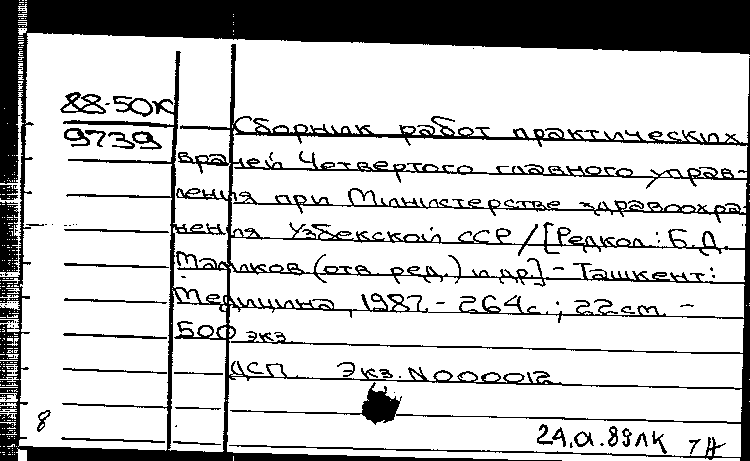 88-50к
9739
Сборник работ практических
врачей Четвертого главного управ-
ления при Министерстве здравоохра
нения Узбекской ССР / [Редкол.: Б.Д.
Маликов (отв. ред.) и др.] - Ташкент:
Медицина, 1987. - 264 с.; 22 см. -
500 экз.
ДСП Экз. N 000012
8